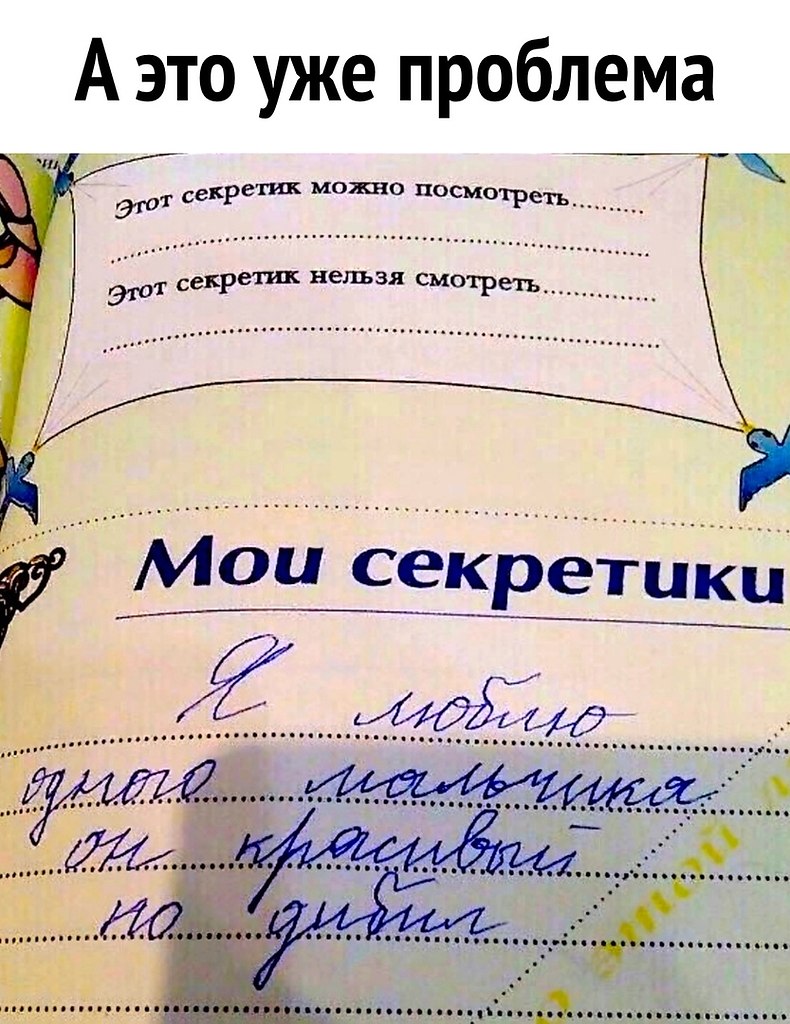 А это уже проблема
Этот секретик можно посмотреть.........
Этот секретик нельзя смотреть..............
Мои секретики
Я люблю
одного мальчика
он красивый
но дибил
этой